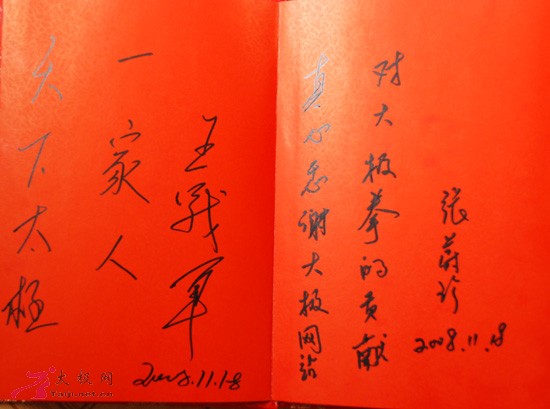 天下太极
一家人
王战军
2008.11.18
真心感谢太极网站
对太极拳的贡献
张蔚珍
2008.11.18
太极网